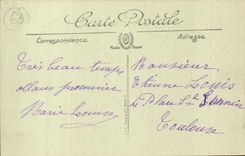 63
Carte Postale
Correspondance
Adresse
Très beau temps
allons promener
Marie Louise
Monsieur
Etienne Louis
Place St Sernin
Toulouse